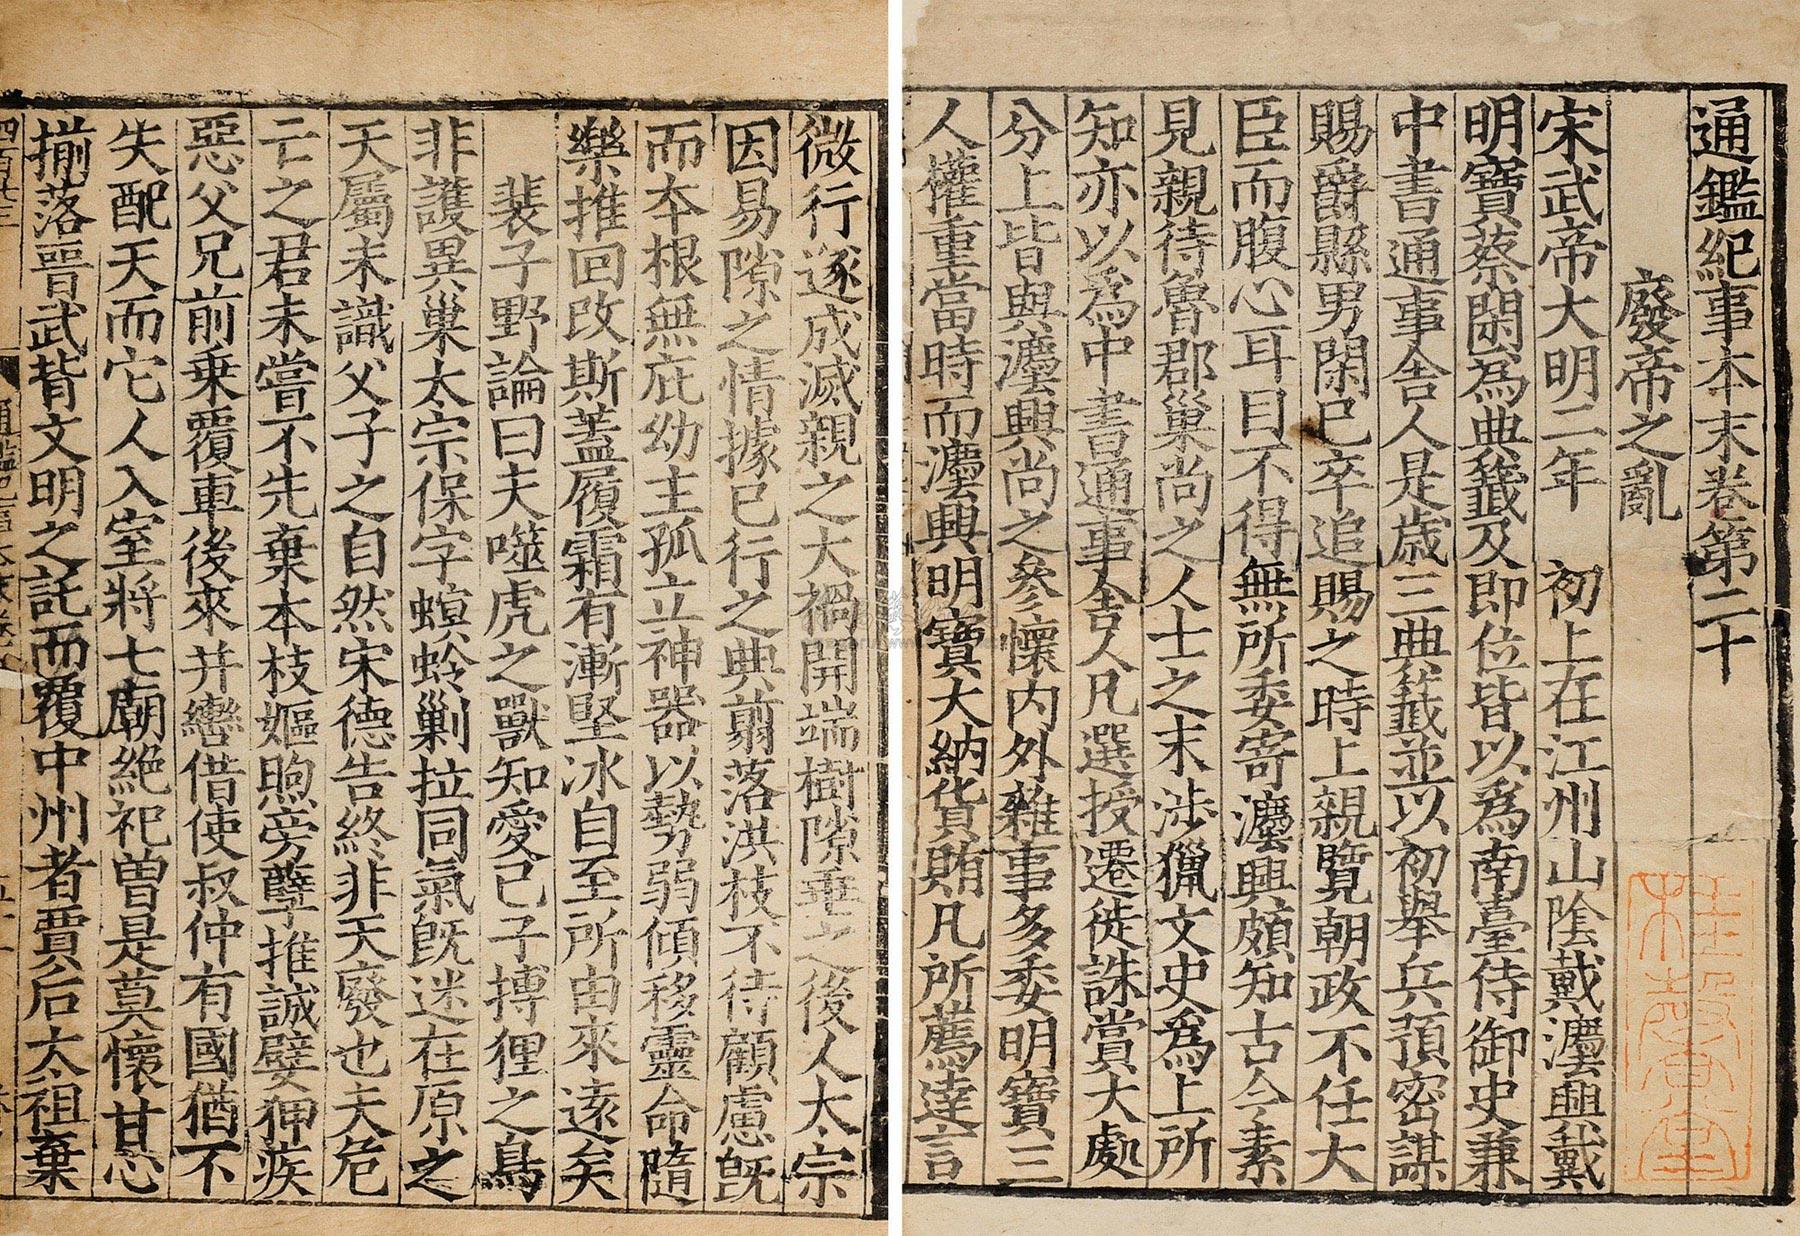 通鑑紀事本末卷第二十
廢帝之亂
宋武帝大明二年　初上在江州山陰戴灋興戴
明寶蔡閑爲典籤及即位皆以爲南臺侍御史兼
中書通事舍人是歲三典籤並以初舉兵預密謀
賜爵縣男閑已卒追賜之時上親覽朝政不任大
臣而腹心耳目不得無所委寄灋興頗知古今素
見親待魯郡巢尚之人士之末涉獵文史爲上所
知亦以爲中書通事舍人凡選授遷徙誅賞大處
分上皆與灋興尚之參懷内外雜事多委明寶三
人權重當時而灋興明寶大納貨賄凡所薦達言
微行遂成滅親之大禍開端樹隙垂之後人太宗
因易隙之情據已行之典翦落洪枝不待顧慮旣
而夲根無庇幼主孤立神器以勢弱傾移靈命隨
樂推回改斯蓋履霜有漸堅冰自至所由來遠矣
裴子野論曰夫噬虎之獸知愛己子搏狸之鳥
非護異巢太宗保字螟蛉剿拉同氣旣迷在原之
天屬未識父子之自然宋德告終非天廢也夫危
亡之君未嘗不先棄本枝嫗煦旁孽推誠嬖狎疾
惡父兄前乗覆車後來并轡借使叔仲有國猶不
失配天而它人入室將七廟絶祀曽是莫懷甘心
揃落晉武背文明之託而覆中州者賈后太祖棄